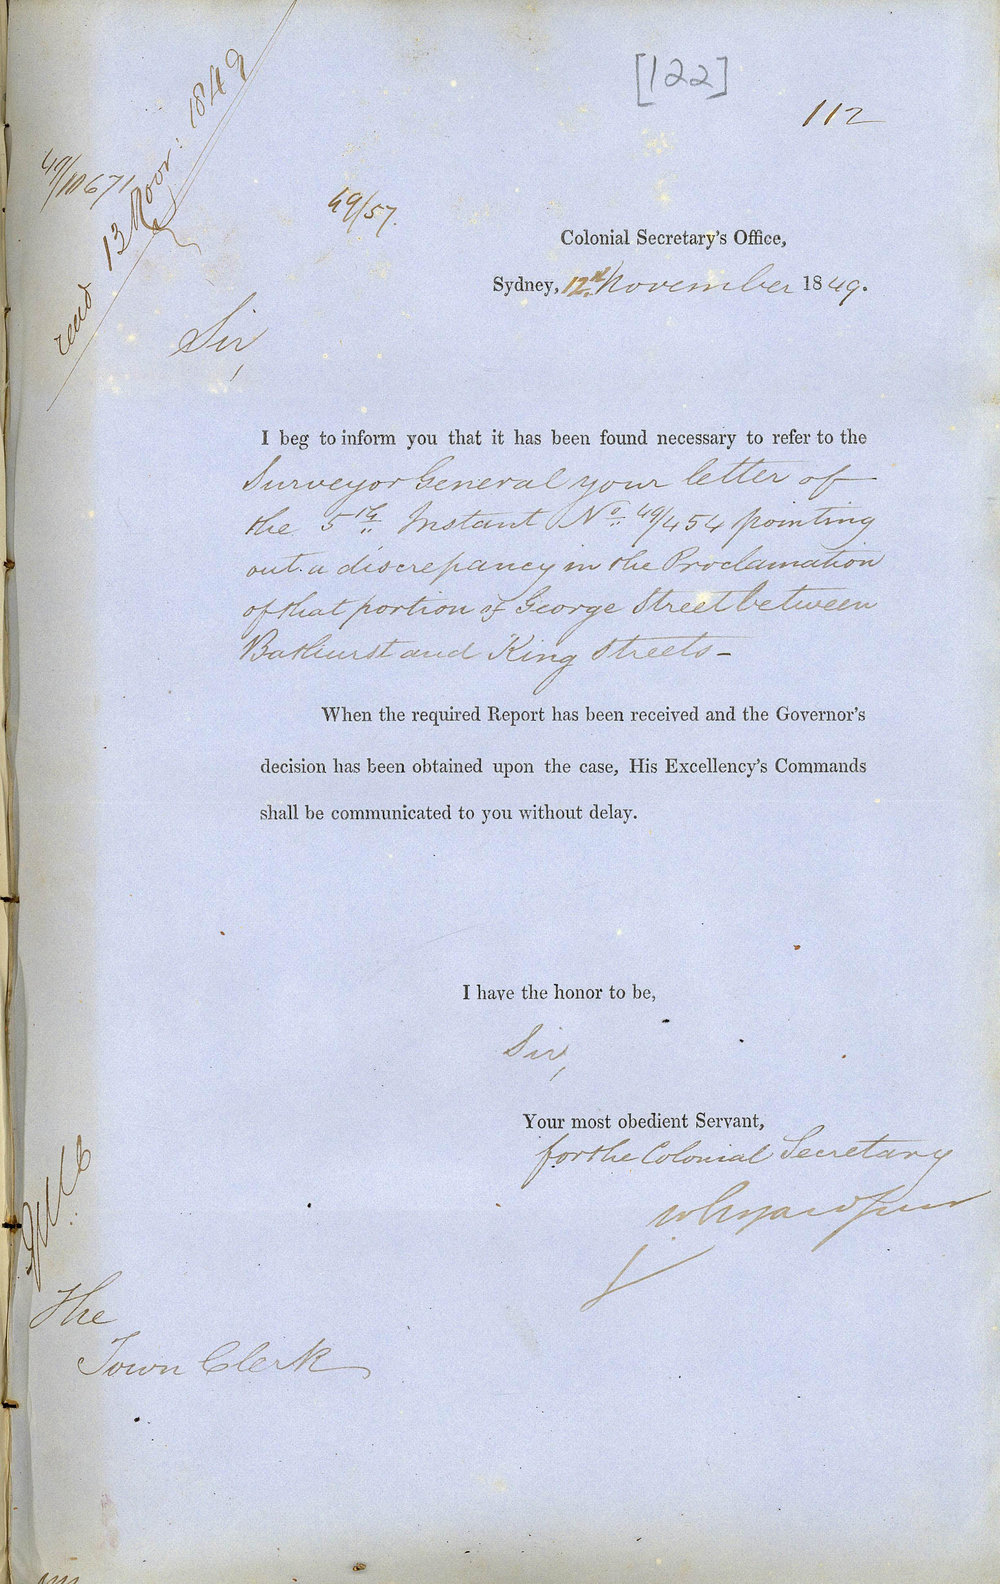 [122]
112
49/10671
recd 13 Novr: 1849
49/57.
Colonial Secretary's Office,
Sydney, 12th November 1849.
Sir,
I beg to inform you that it has been found necessary to refer to the
Surveyor General your letter of
the 5th Instant No. 49/454 pointing
out a discrepancy in the Proclamation
of that portion of George Street between
Bathurst and King Streets-
When the required Report has been received and the Governor's
decision has been obtained upon the case, His Excellency's Commands
shall be communicated to you without delay.
I have the honor to be,
Sir,
Your most obedient Servant,
for the Colonial Secretary
The
Town Clerk